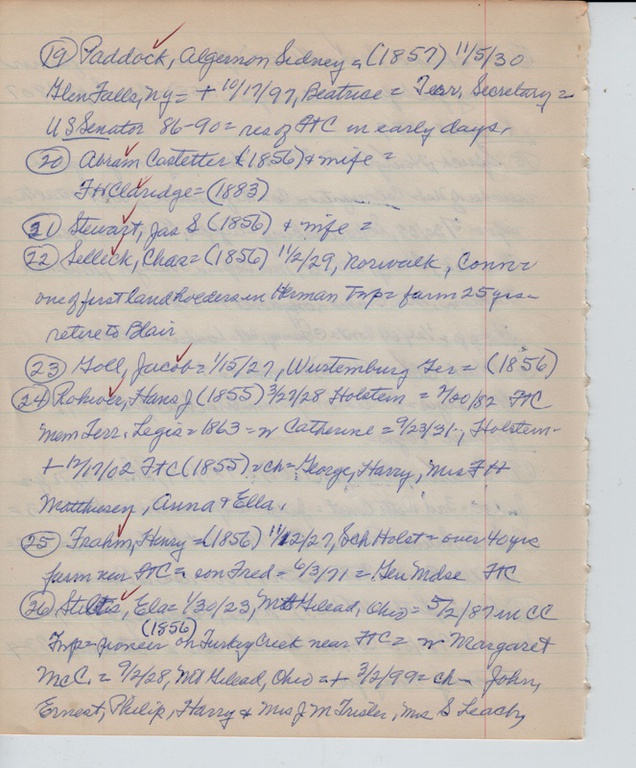 (19) Paddock, Algernon Sidney = (1857) 11/5/30
Glen Falls, Ny = + 10/17/97, Beatrice = Terr. Secretary =
US Senator 86-90 = res of FtC in early days.
(20) Abram Castetter (1856) & wife =
FH Claridge = (1883)
21) Stewart, Jas S (1856) & wife =
(22) Sellick, Chas = (1856) 11/2/29, Norwalk, Conn =
one of first landholders in Herman Twp = farm 25 yrs =
retire to Blair
(23) Goll, Jacob = 1/15/27, Wurtemburg Ger = (1856)
(24) Rohwer, Hans J (1855) 3/27/28 Holstein = FtC
Mem Terr. Legis = 1863 = w Catherine = 9/23/31, Holstein =
+ 12/17/02 FtC (1855) = ch = George, Harry, Mrs F H
Matthiesen, Anna & Ella.
(25) Frahm, Henry = (1856) 11/12/27, Sch Holst = over 40 yrs
farm near FtC = son Fred = 6/3/71 = Gen Mdse FtC
(26) Stilts, Ela = 1/30/23, Mt Gilead, Ohio = 5/2/87 in CC
Twp = pioneer (1856) on Turkey Creek near FtC = w Margaret
McC. = 9/2/28, Mt Gilead, Ohio = + 3/2/99 = ch - John,
Ernest, Philip, Harry & Mrs J M Trisler, Mrs S Leach,